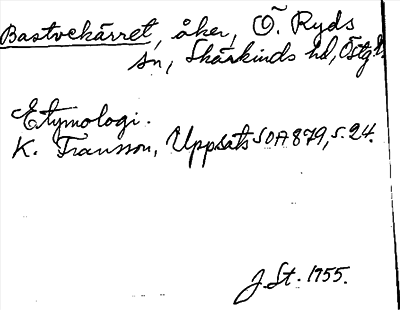 Bastvekärret, åker, Ö. Ryds
sn, Skärkinds hd, Östg.
Etymologi.
K. Fransson, Uppsats SOA 879, s. 24.
J. St. 1955.